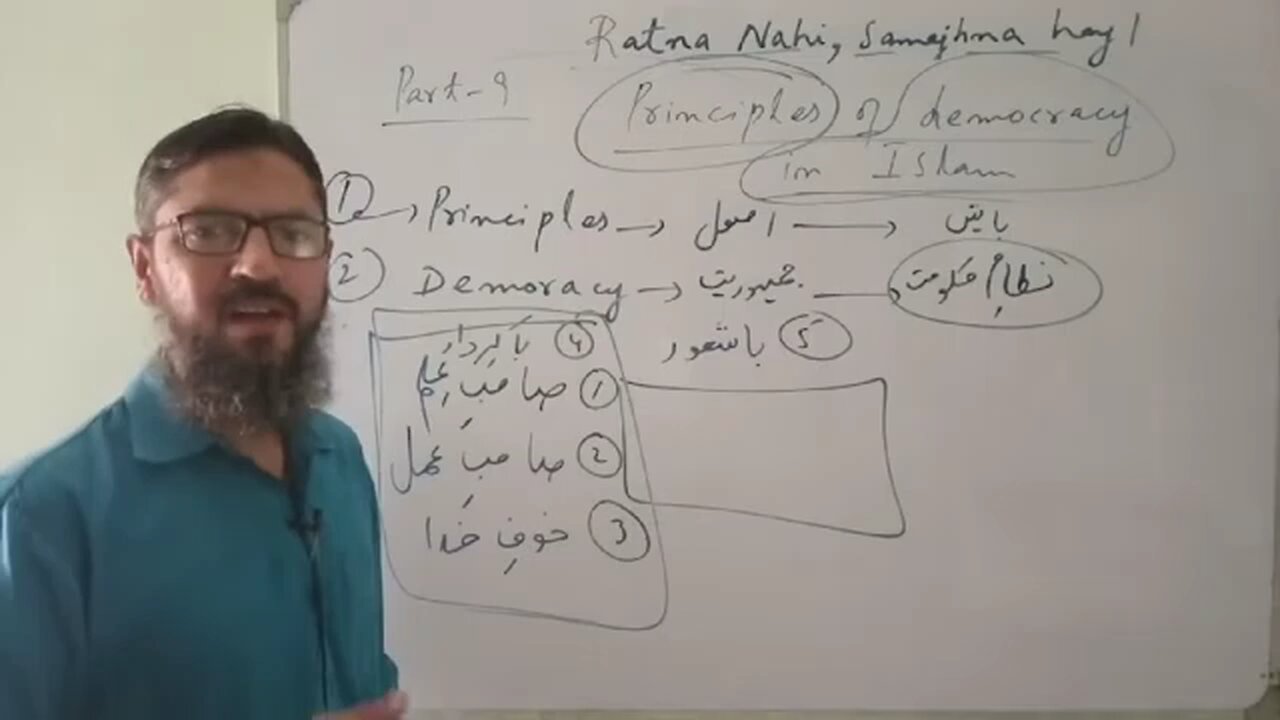 Ratna Nahi, Samajhna hay!
Part-9
Principles of democracy
in Islam
1 → Principles → اصول → باتیں
2 Demoracy → جمہوریت → نظامِ حکومت
4 باکردار
5 باشعور
1 صاحبِ علم
2 صاحبِ عمل
3 خوفِ خدا